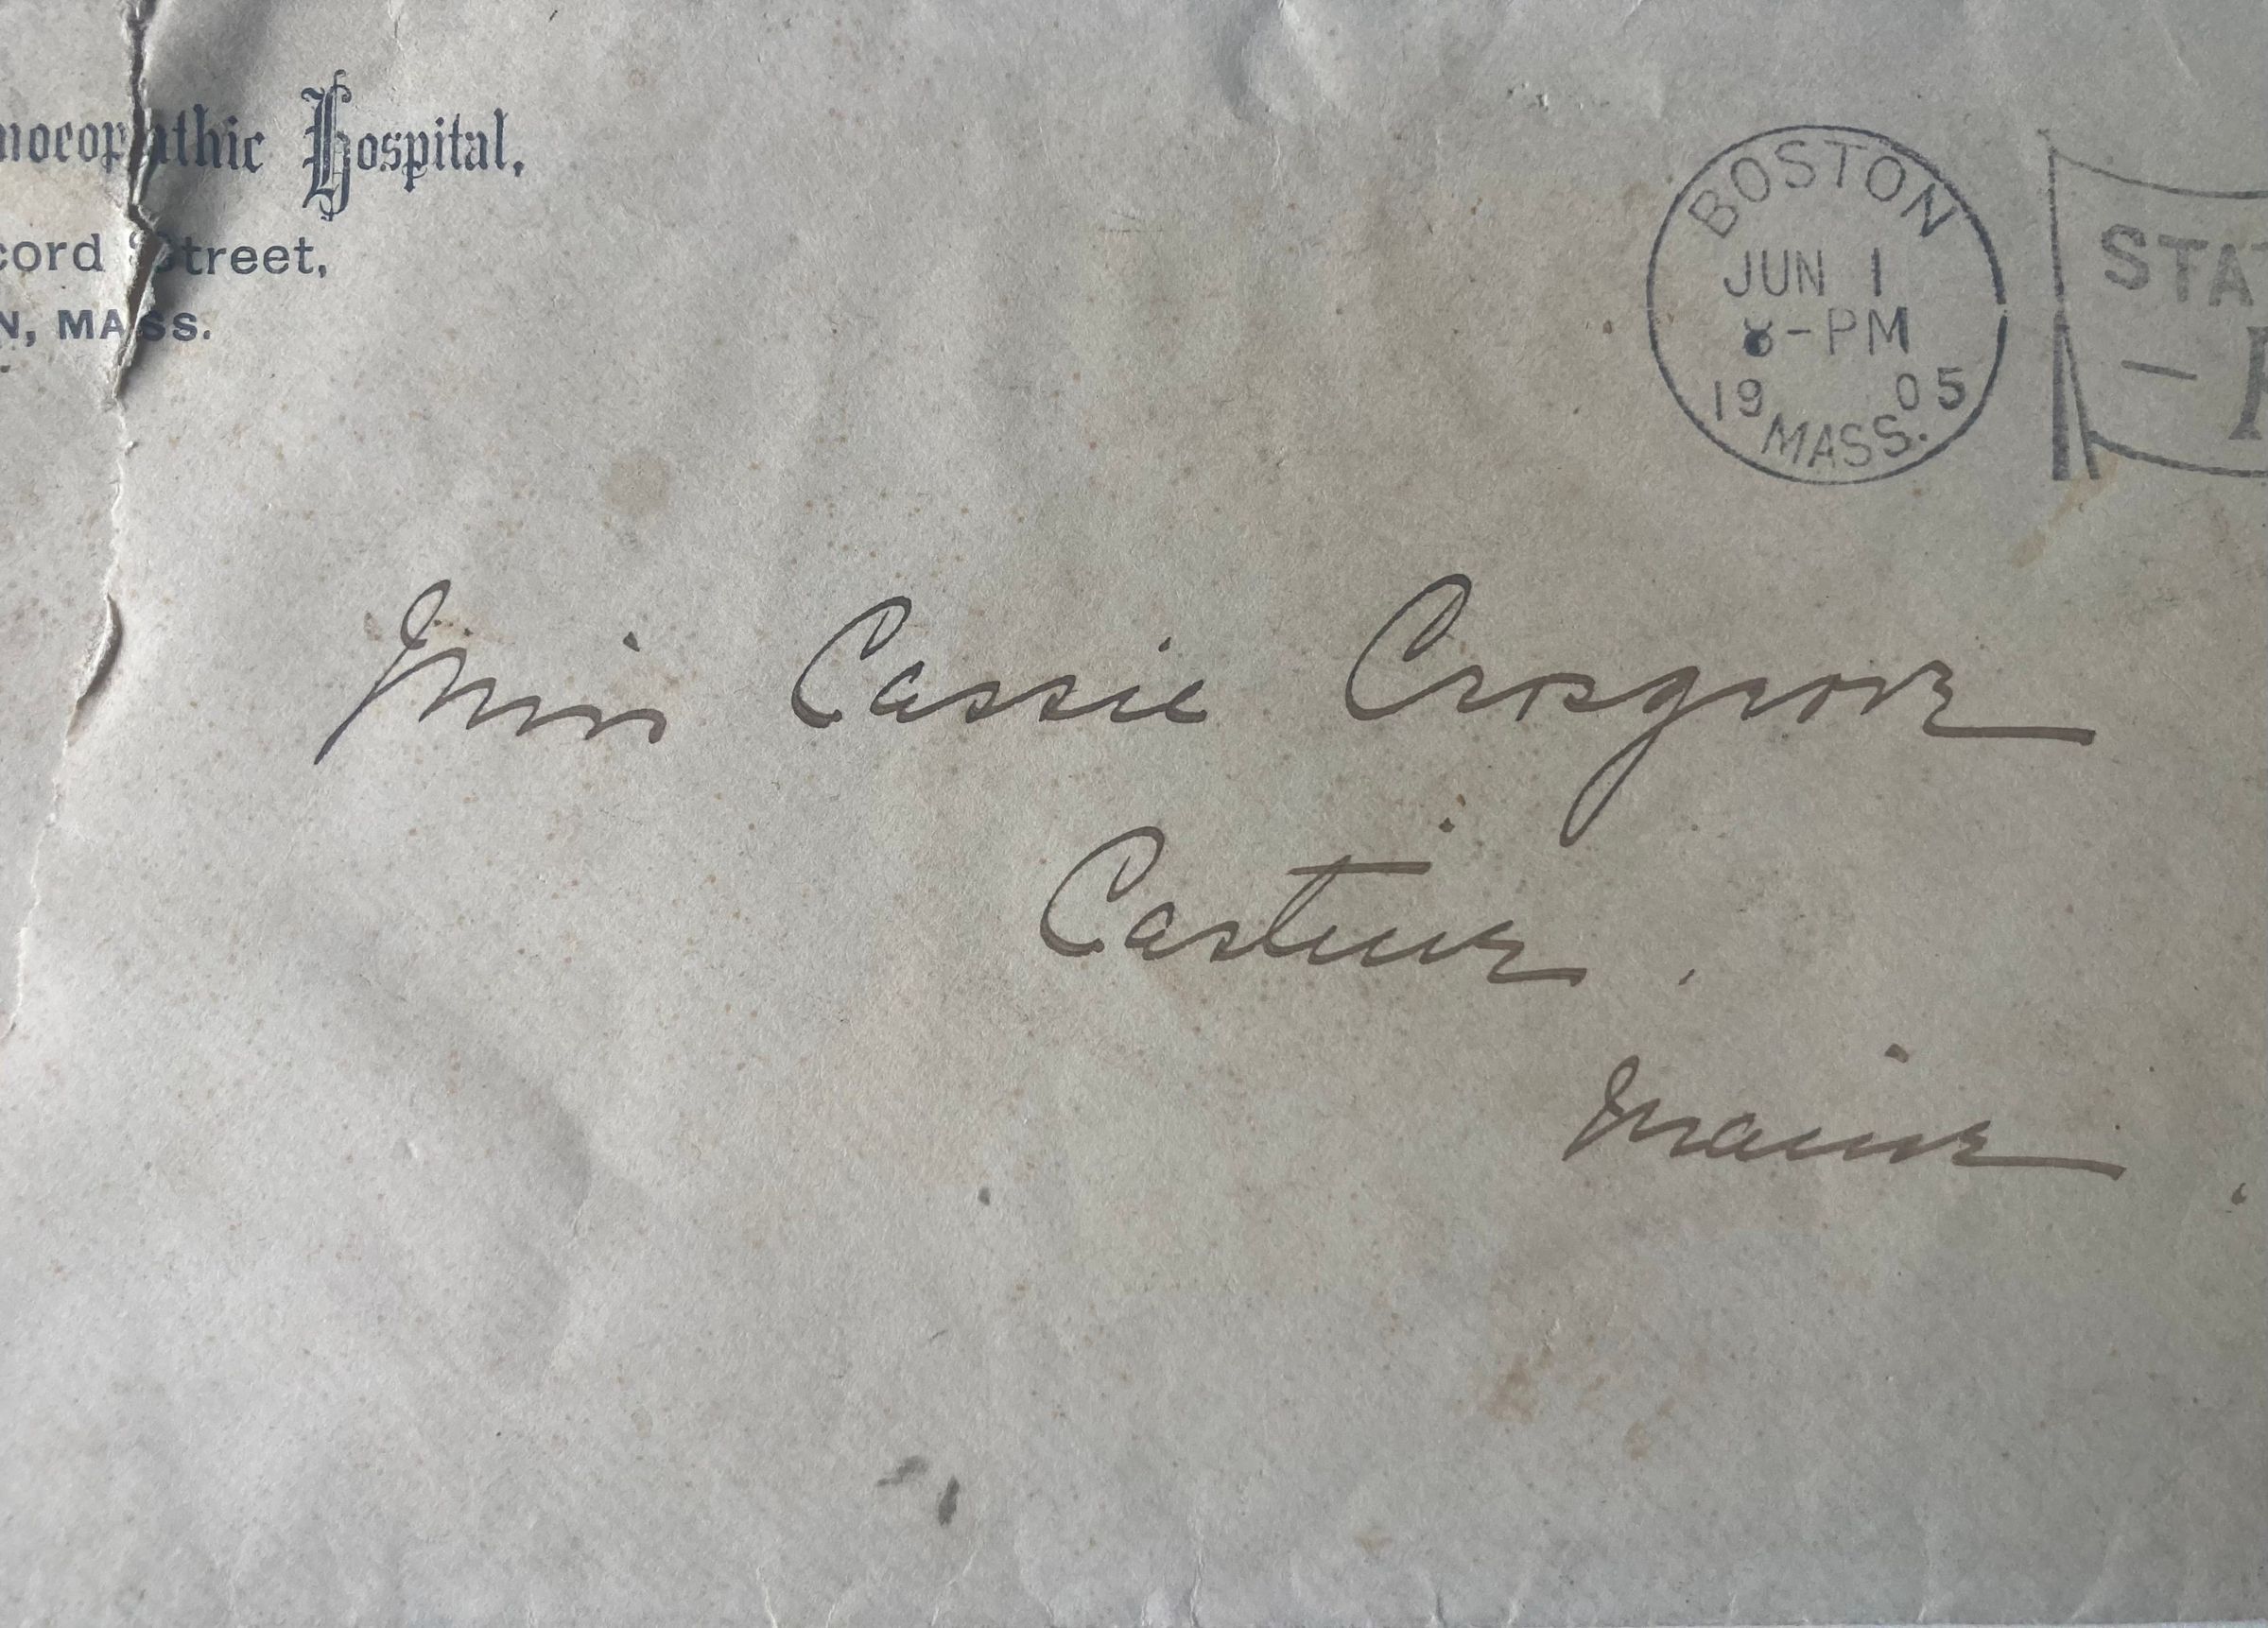 moeopathic Hospital,
cord Street,
N, MASS.
BOSTON
JUN 1
8-PM
1905
MASS.
STAT
Miss Cassie Crosgrove
Castine.
Maine.